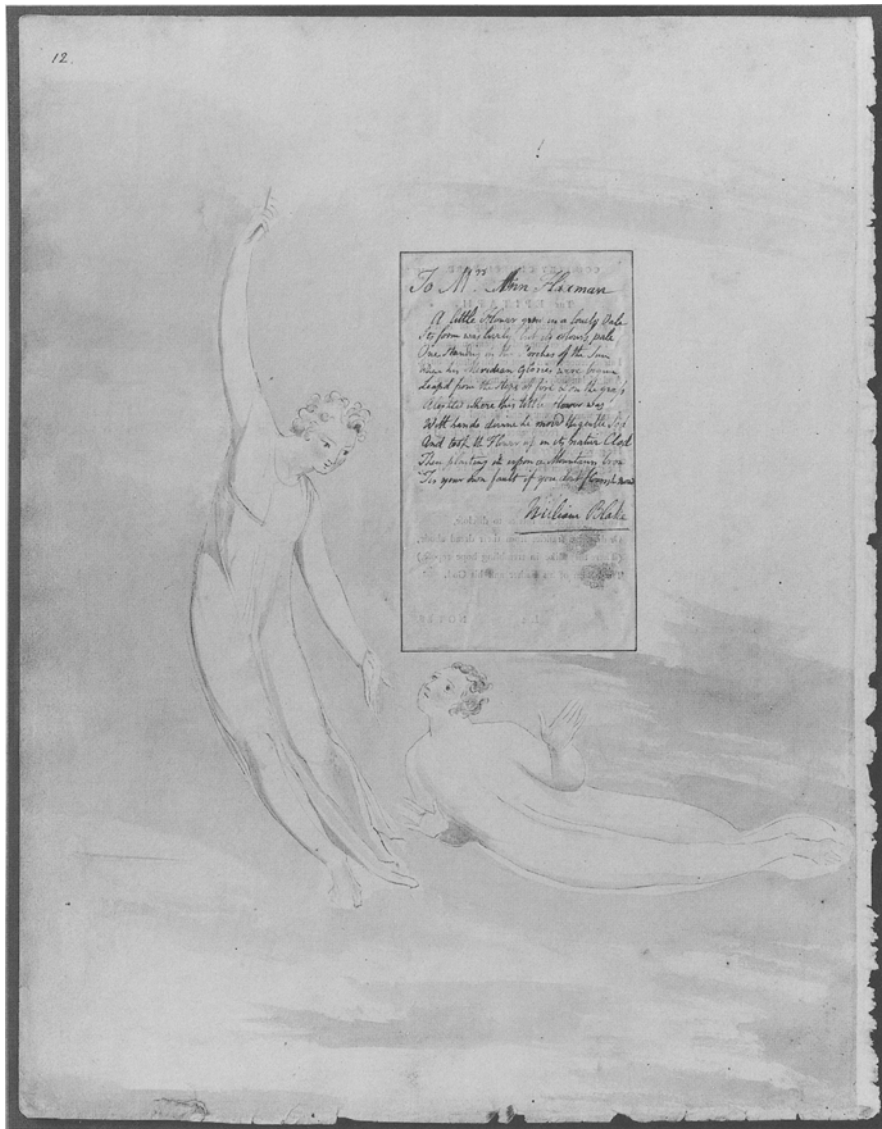 12.
To Mrs Ann Flaxman
A little Flower grew in a lonely Vale
Its form was lovely but its colours pale
One standing in the Porches of the Sun
When his Meridian Glories were begun
Leapd from the steps of fire & on the grass
Alighted where this little flower was
With hands divine he movd the gentle Sod
And took the Flower up in its native Clod
Then planting it upon a Mountains brow
Tis your own fault if you dont flourish now
William Blake